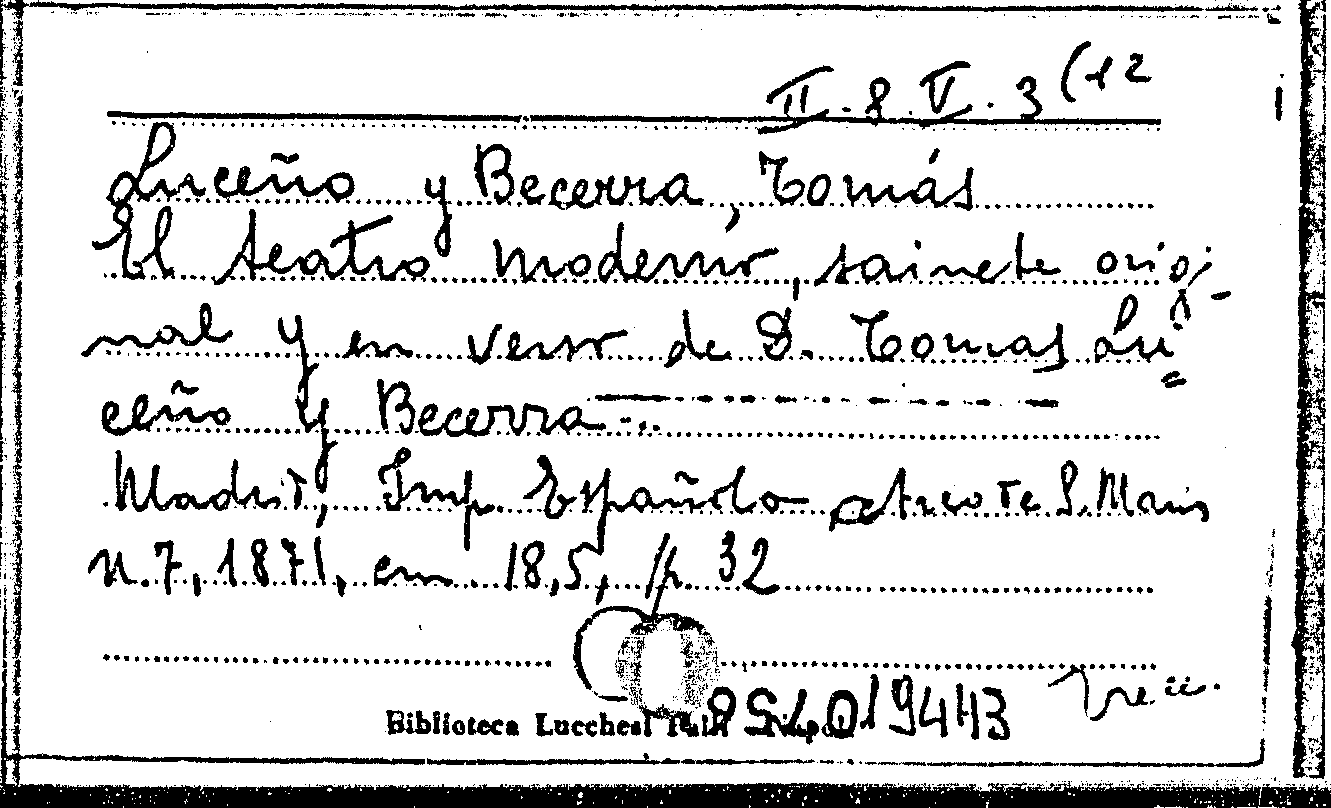 II. 8 V. 3 (12
Luceño y Becerra, Tomás
El teatro moderno, sainete origi-
nal y en verso de D. Tomas Lu=
ceño y Becerra...
Madrid, Imp. Española Arco de S. Maria
n. 7, 1871, cm. 18,5, p. 32
Biblioteca Lucchesi Palli
019443